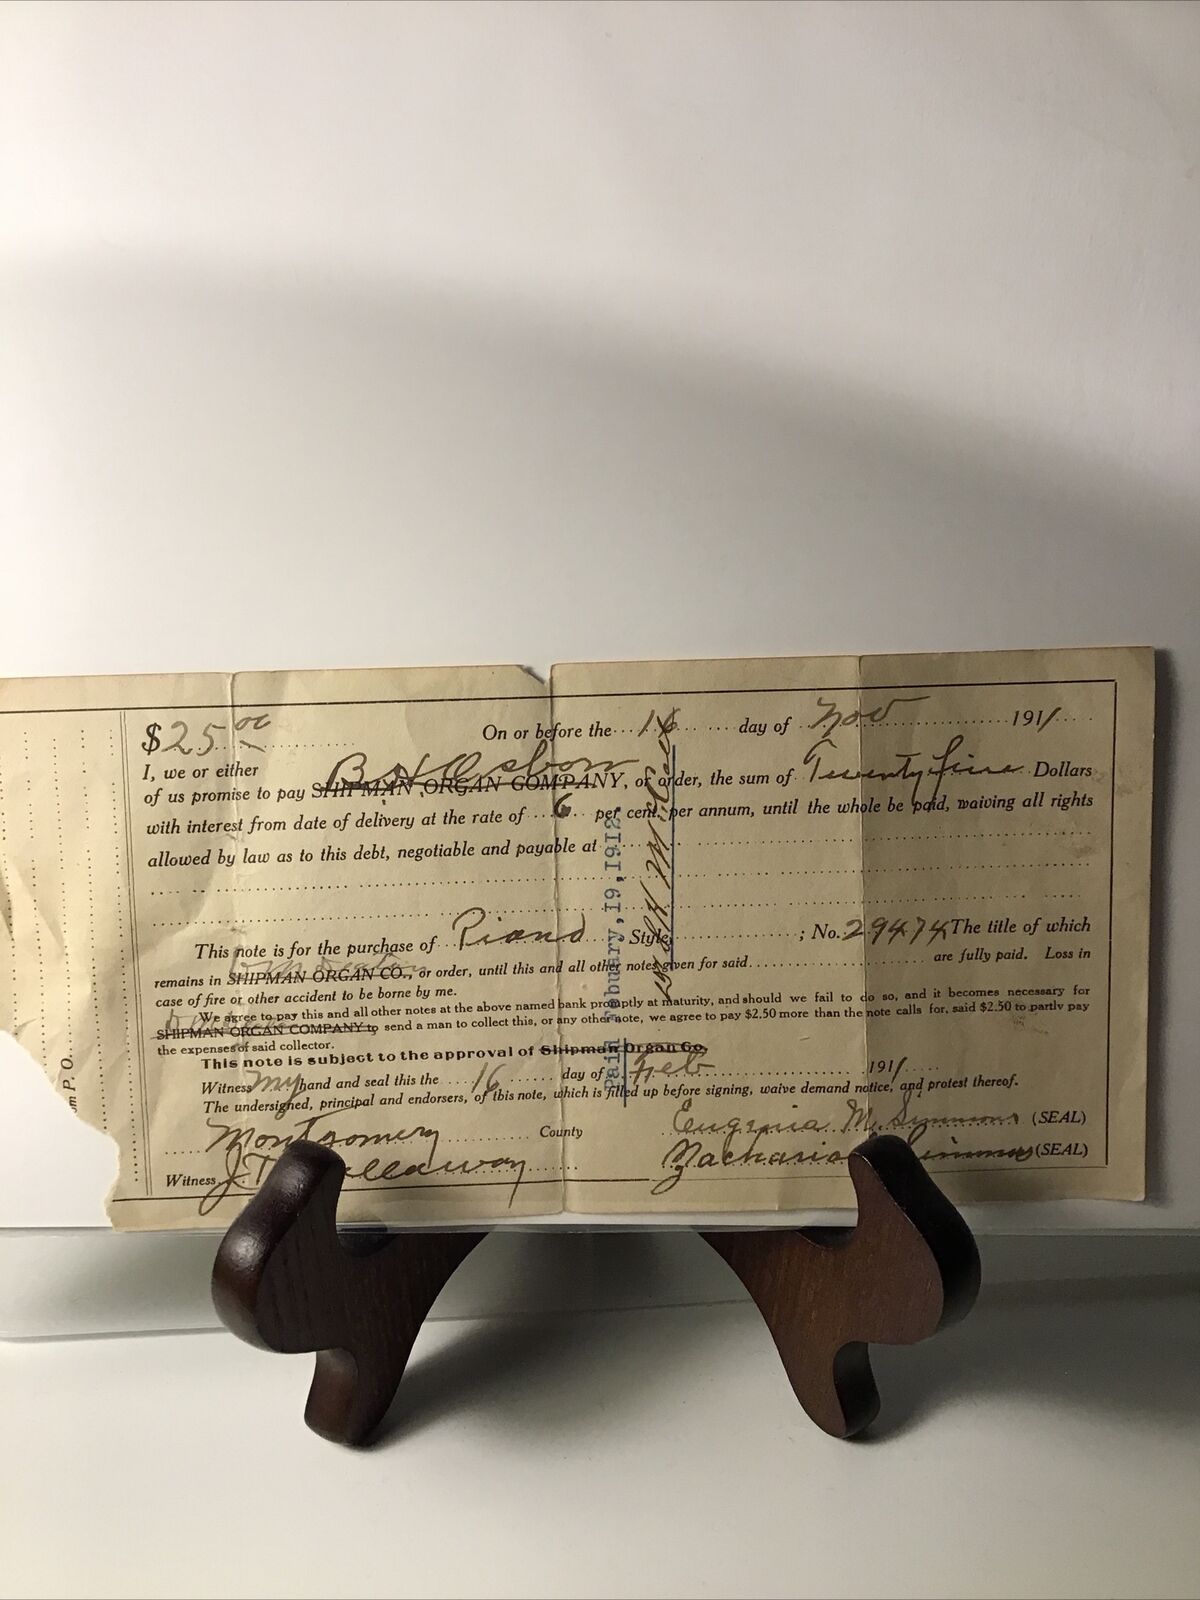 $25 00 On or before the 16 day of Nov 1911
I, we or either B H Osbon
of us promise to pay SHIPMAN ORGAN COMPANY, or order, the sum of Twenty five Dollars
with interest from date of delivery at the rate of 6 per cent. per annum, until the whole be paid, waiving all rights
allowed by law as to this debt, negotiable and payable at
This note is for the purchase of Piano Style ; No. 29474 The title of which
remains in SHIPMAN ORGAN CO., or order, until this and all other notes given for said are fully paid. Loss in
case of fire or other accident to be borne by me.
We agree to pay this and all other notes at the above named bank promptly at maturity, and should we fail to do so, and it becomes necessary for
SHIPMAN ORGAN COMPANY to send a man to collect this, or any other note, we agree to pay $2.50 more than the note calls for, said $2.50 to partly pay
the expenses of said collector.
This note is subject to the approval of Shipman Organ Co.
Witness my hand and seal this the 16 day of Feb 1911
The undersigned, principal and endorsers, of this note, which is filled up before signing, waive demand notice, and protest thereof.
Montgomery County Eugenia M. Simmons (SEAL)
Witness J T Callaway Zacharia Simmons (SEAL)
Paid February, 19, 1912.
P. O.